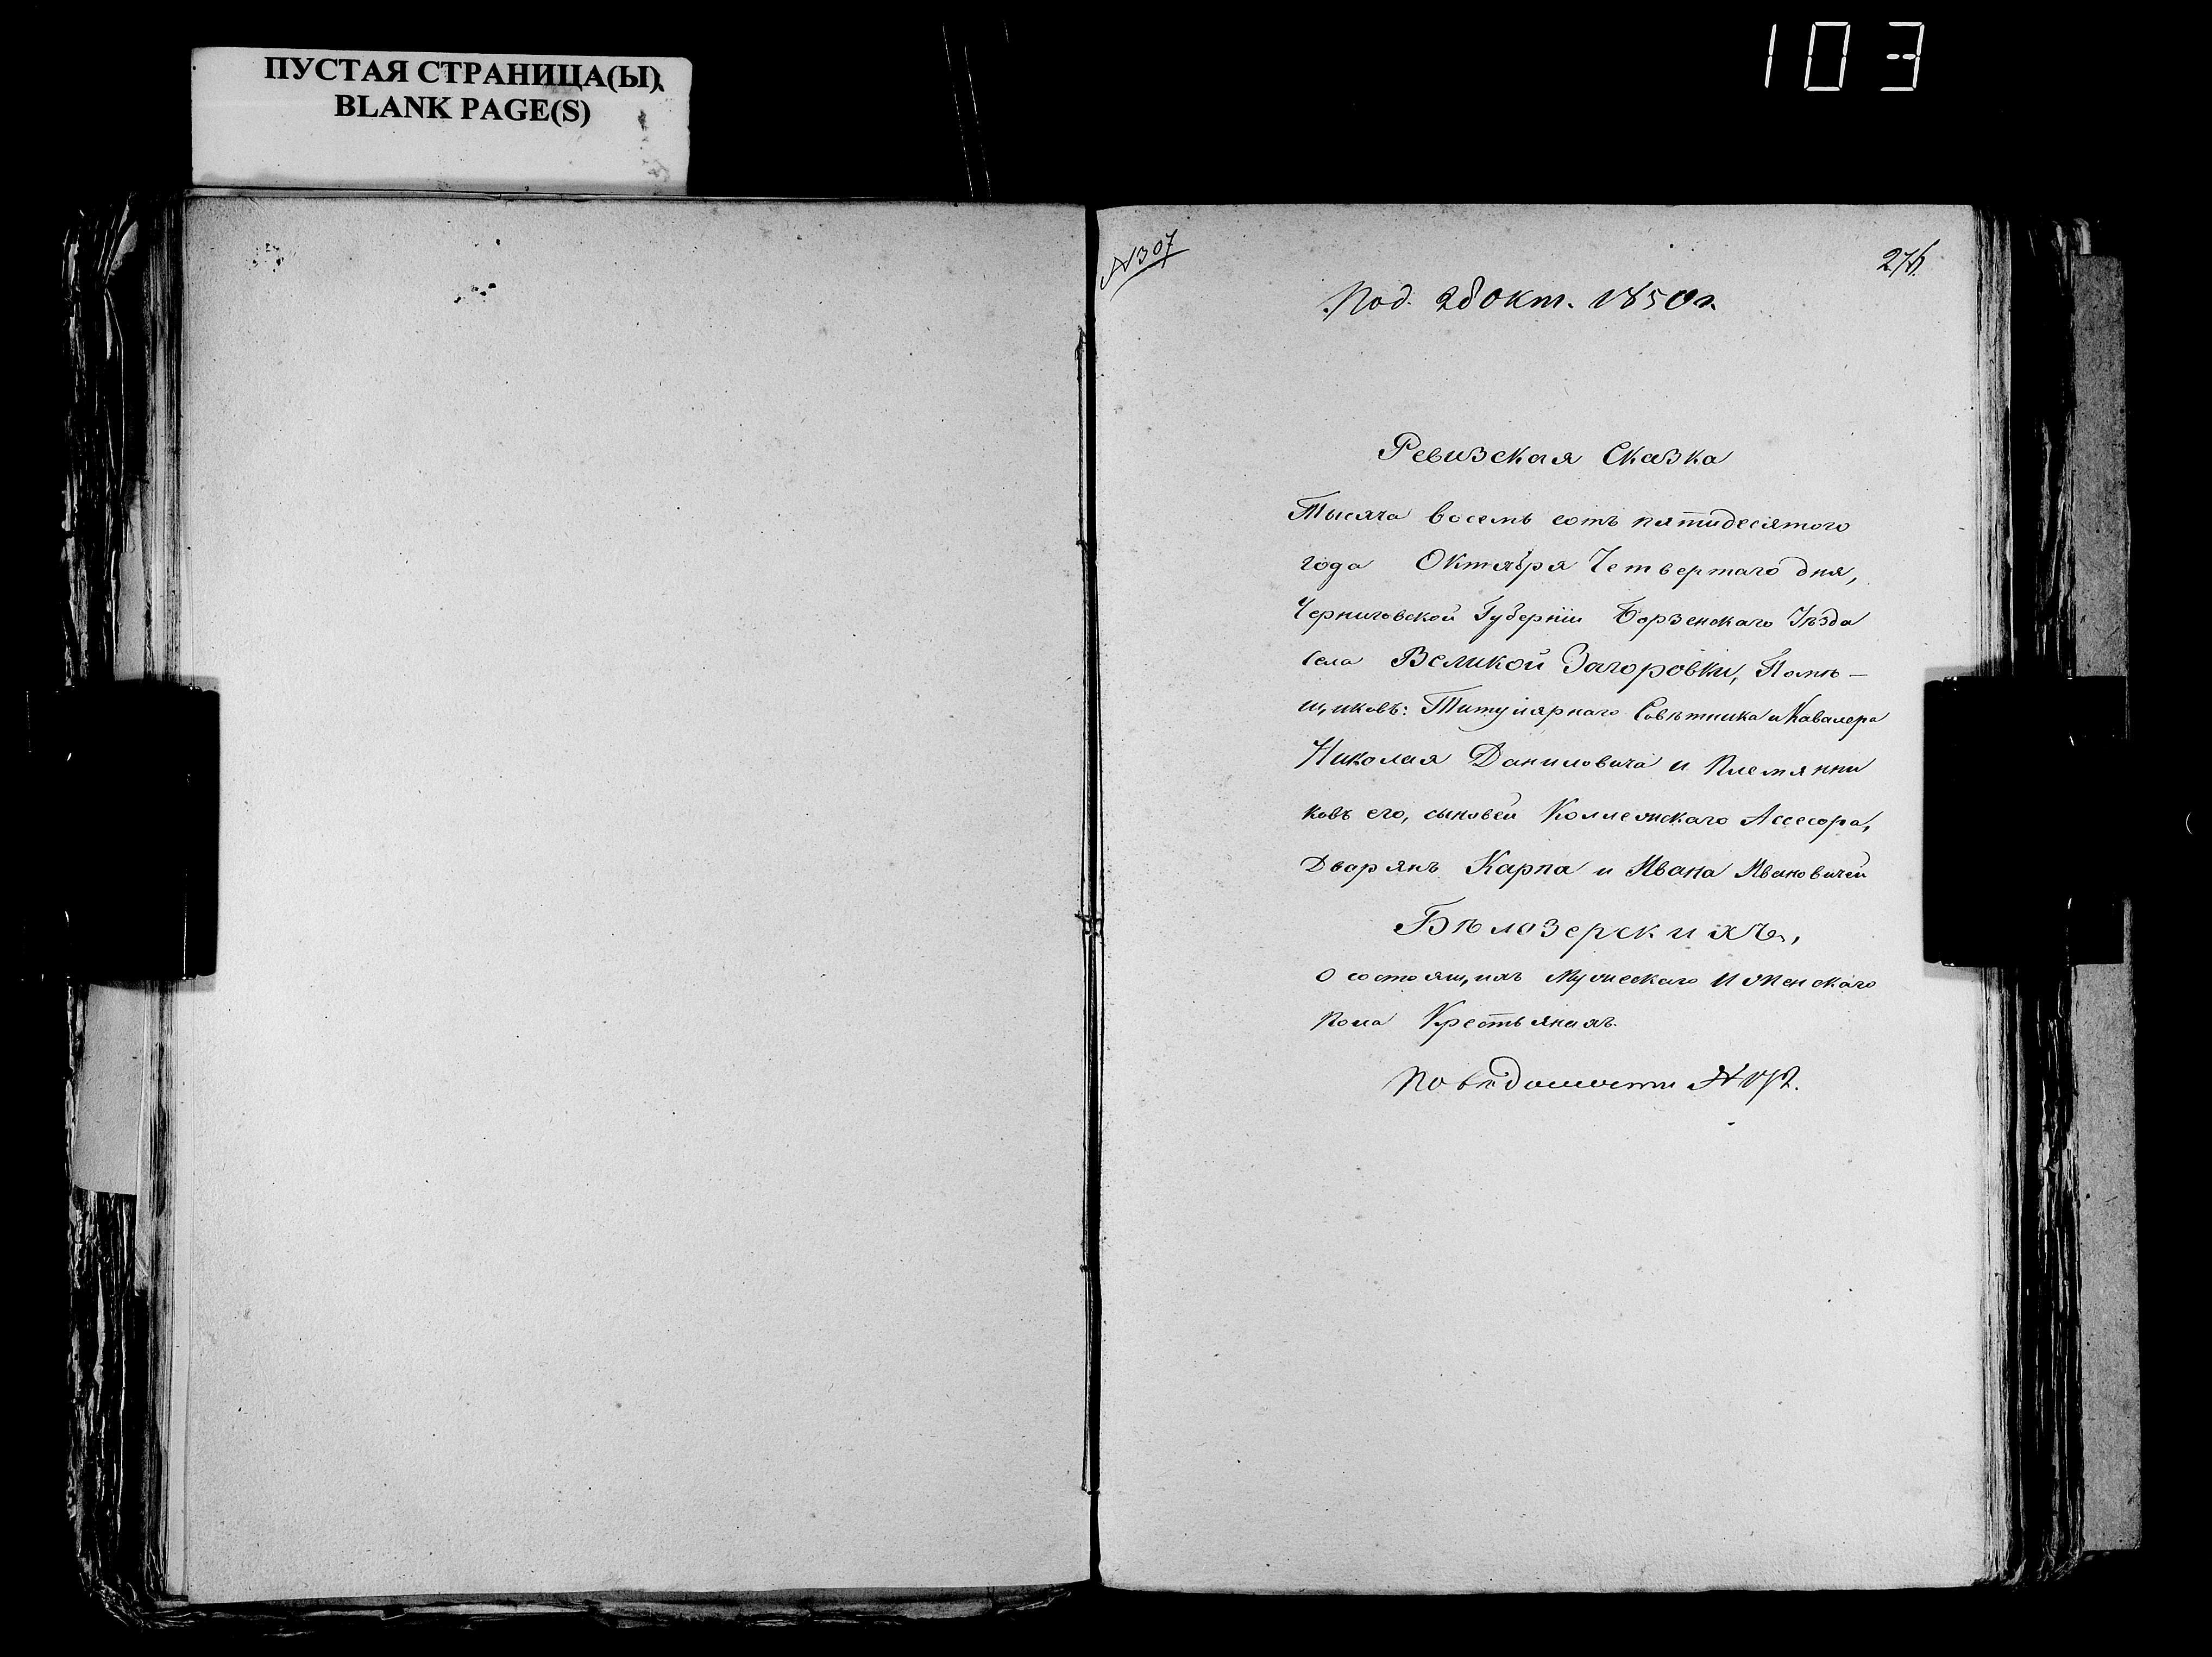 ПУСТАЯ СТРАНИЦА(Ы)
BLANK PAGE(S)
103
№307
Под. 28 Окт. 1850 г.
Ревизская Сказка
Тысяча восемь сотъ пятидесятого
года Октября Четвертаго дня,
Черниговской Губерніи Борзенскаго Уѣзда
Села Великой Загоровки, Помѣ-
щиковъ: Титулярнаго Совѣтника и Кавалера
Николая Даниловича и Племянни
ковъ его, сыновей Коллежскаго Ассесора,
Дворянъ Карпа и Ивана Ивановичей
Бѣлозерскихъ,
о состоящихъ Мужескаго и женскаго
пола Крестьянахъ.
По вѣдомости №